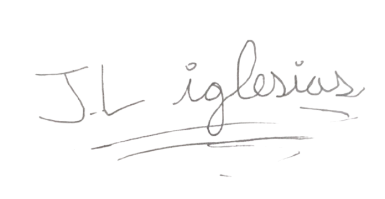 J.L iglesias